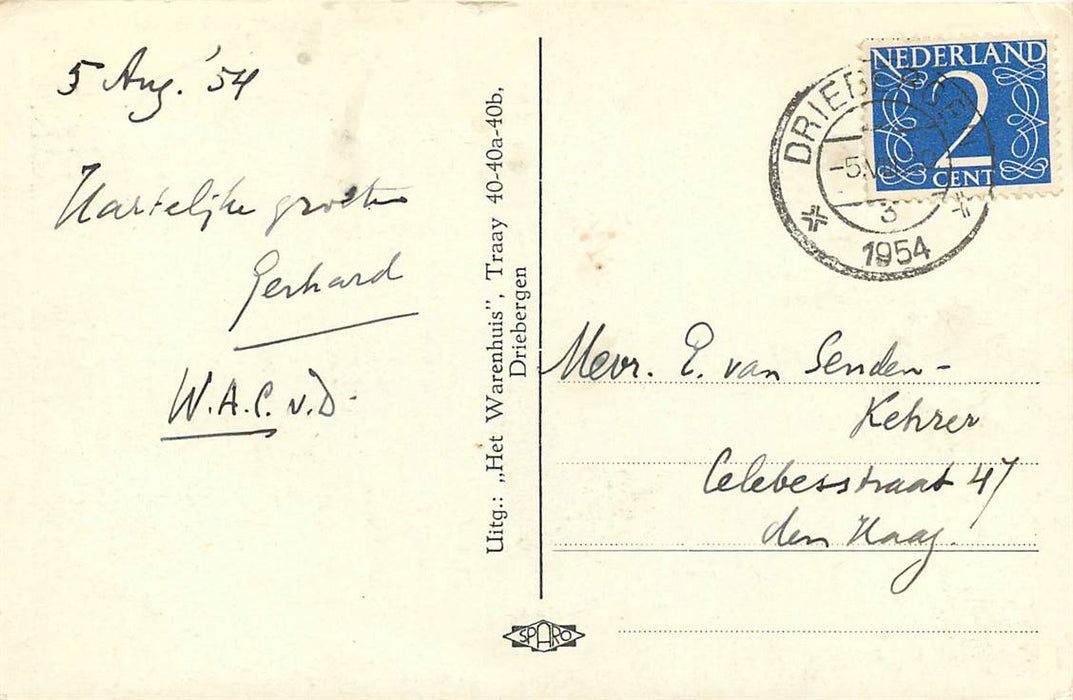 5 Aug. '54
Hartelijke groeten
Gerhard
W.A.C. v.D.
Uitg.: „Het Warenhuis”, Traay 40-40a-40b,
Driebergen
SPARO
NEDERLAND
2
CENT
DRIEBERGEN
3
1954
Mevr. E. van Senden-
Kehrer
Celebesstraat 47
den Haag.